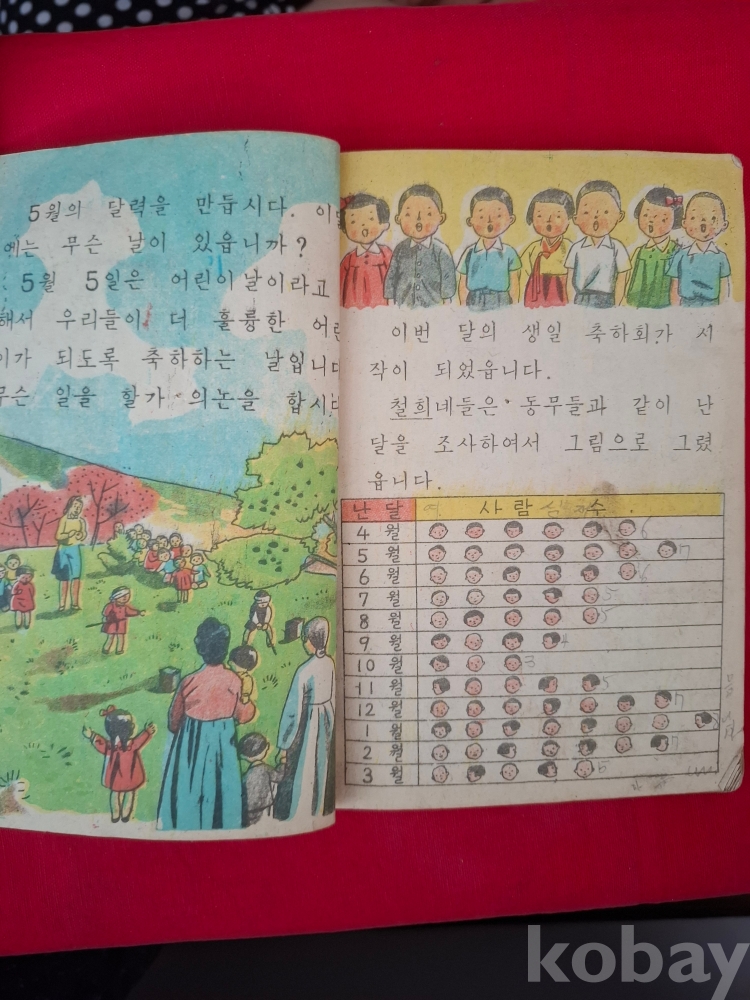 5월의 달력을 만듭시다.
에는 무슨 날이 있읍니까?
5월 5일은 어린이날이라고
해서 우리들이 더 훌륭한
되도록 축하하는 날입니다
무슨 일을 할가 의논을 합시다
이번 달의 생일 축하회가 시
작이 되었읍니다.
철희네들은 동무들과 같이 난
달을 조사하여서 그림으로 그렸
읍니다.
난 달 사 람 수
4 월 6
5 월 7
6 월 6
7 월 5
8 월 5
9 월 4
10 월 3
11 월 5
12 월 7
1 월
2 월 7
3 월 5
kobay